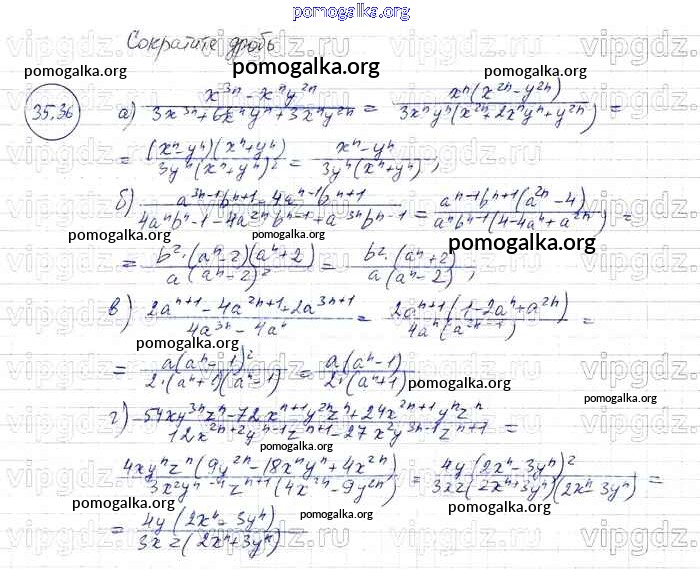 pomogalka.org
Сократите дробь
pomogalka.org pomogalka.org pomogalka.org
35.36 а) (x^{3n} - x^n y^{2n})/(3x^{3n} + 6x^n y^n + 3x^n y^{2n}) = x^n(x^{2n} - y^{2n})/(3x^n y^n(x^{2n} + 2x^n y^n + y^{2n})) =
= (x^n - y^n)(x^n + y^n)/(3y^n(x^n + y^n)^2) = (x^n - y^n)/(3y^n(x^n + y^n));
б) (a^{3n-1}b^{n+1} - 4a^{n-1}b^{n+1})/(4a^n b^{n-1} - 4a^{2n}b^{n-1} + a^{3n}b^{n-1}) = a^{n-1}b^{n+1}(a^{2n} - 4)/(a^n b^{n-1}(4 - 4a^n + a^{2n})) =
pomogalka.org pomogalka.org
= b^2·(a^n - 2)(a^n + 2)/(a(a^n - 2)^2) = b^2·(a^n + 2)/(a(a^n - 2));
pomogalka.org
в) (2a^{n+1} - 4a^{2n+1} + 2a^{3n+1})/(4a^{3n} - 4a^n) = 2a^{n+1}(1 - 2a^n + a^{2n})/(4a^n(a^{2n} - 1)) =
= a(a^n - 1)^2/(2·(a^n + 1)(a^n - 1)) = a(a^n - 1)/(2·(a^n + 1))
pomogalka.org pomogalka.org
г) (-54xy^{3n}z^n - 72x^{n+1}y^{2n}z^n + 24x^{2n+1}y^n z^n)/(12x^{2n+2}y^{n-1}z^{n+1} - 27x^2y^{3n-1}z^{n+1}) =
pomogalka.org
4xy^n z^n(9y^{2n} - 18x^n y^n + 4x^{2n})/(3x^2y^{n-1}z^{n+1}(4x^{2n} - 9y^{2n})) = 4y(2x^n - 3y^n)^2/(3xz(2x^n + 3y^n)(2x^n - 3y^n)) =
pomogalka.org pomogalka.org
= 4y(2x^n - 3y^n)/(3xz(2x^n + 3y^n))
pomogalka.org
vipgdz.ru